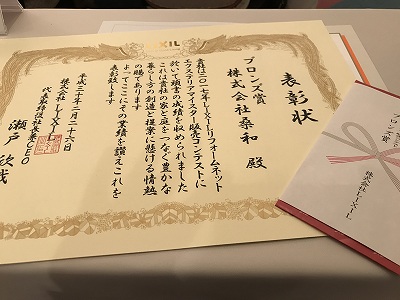 LIXIL
表彰状
ブロンズ賞
株式会社桑和 殿
貴社は二〇一七年LIXILリフォームネット
エクステリアマイスター販売コンテストに
於いて頭書の成績を収められました
これは貴社の家と庭をつなぐ豊かな
暮らし方の創造と提案に懸ける情熱
の賜であります
よってここにその業績を讃えこれを
表彰致します
平成三十年二月二十六日
株式会社LIXIL
代表取締役社長兼CEO
瀬戸欣哉
ブロンズ賞
株式会社LIXIL